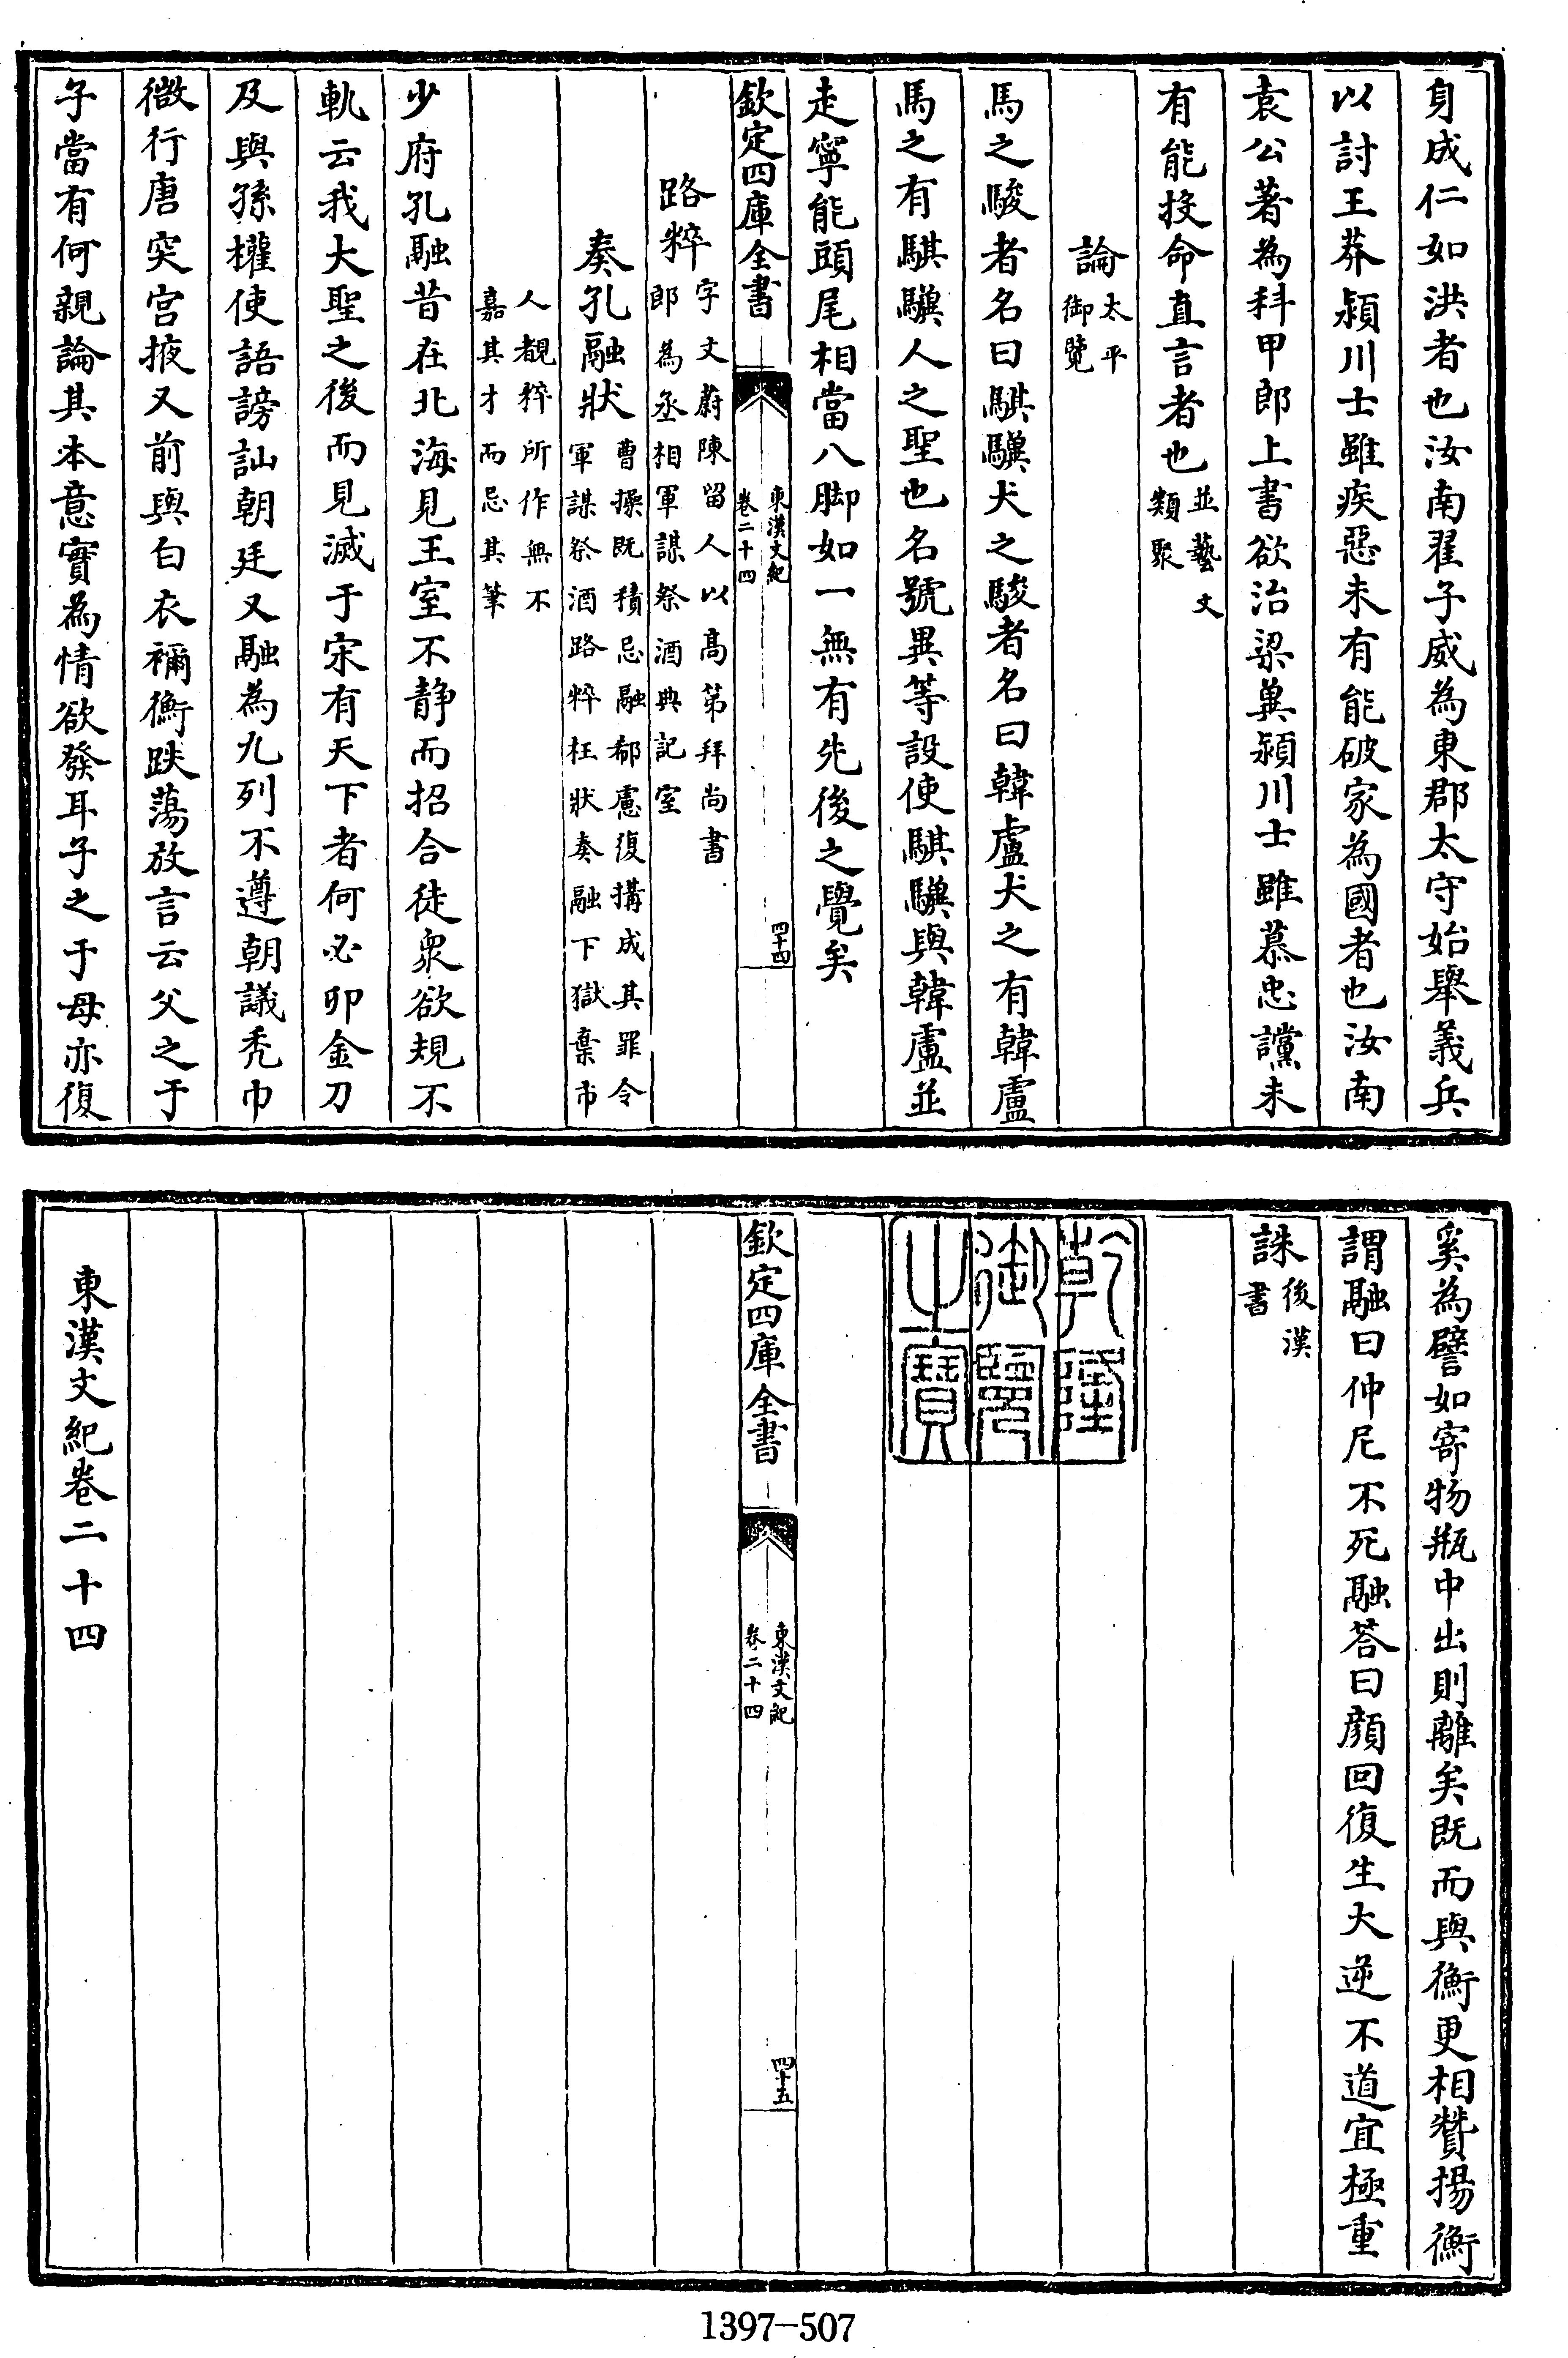 身成仁如洪者也汝南翟子威為東郡太守始舉義兵
以討王莽潁川士雖疾惡未有能破家為國者也汝南
袁公著為科甲郎上書欲治梁冀潁川士雖慕忠讜未
有能投命直言者也並藝文類聚
論太平御覽
馬之駿者名曰騏驥犬之駿者名曰韓盧犬之有韓盧
馬之有騏驥人之聖也名號異等設使騏驥與韓盧並
走寧能頭尾相當八脚如一無有先後之覺矣
欽定四庫全書
東漢文紀
卷二十四
四十四
路粹字文蔚陳留人以高第拜尚書郎為丞相軍謀祭酒典記室
奏孔融狀曹操既積忌融郗慮復搆成其罪令軍謀祭酒路粹枉狀奏融下獄棄市
人覩粹所作無不嘉其才而忌其筆
少府孔融昔在北海見王室不静而招合徒衆欲規不
軌云我大聖之後而見滅于宋有天下者何必卯金刀
及與孫權使語謗訕朝廷又融為九列不遵朝議禿巾
微行唐突宫掖又前與白衣禰衡跌蕩放言云父之于
子當有何親論其本意實為情欲發耳子之于母亦復
奚為譬如寄物瓶中出則離矣既而與衡更相贊揚衡
謂融曰仲尼不死融答曰顔回復生大逆不道宜極重
誅後漢書
乾隆御覽之寶
欽定四庫全書
東漢文紀
卷二十四
四十五
東漢文紀卷二十四
1397-507